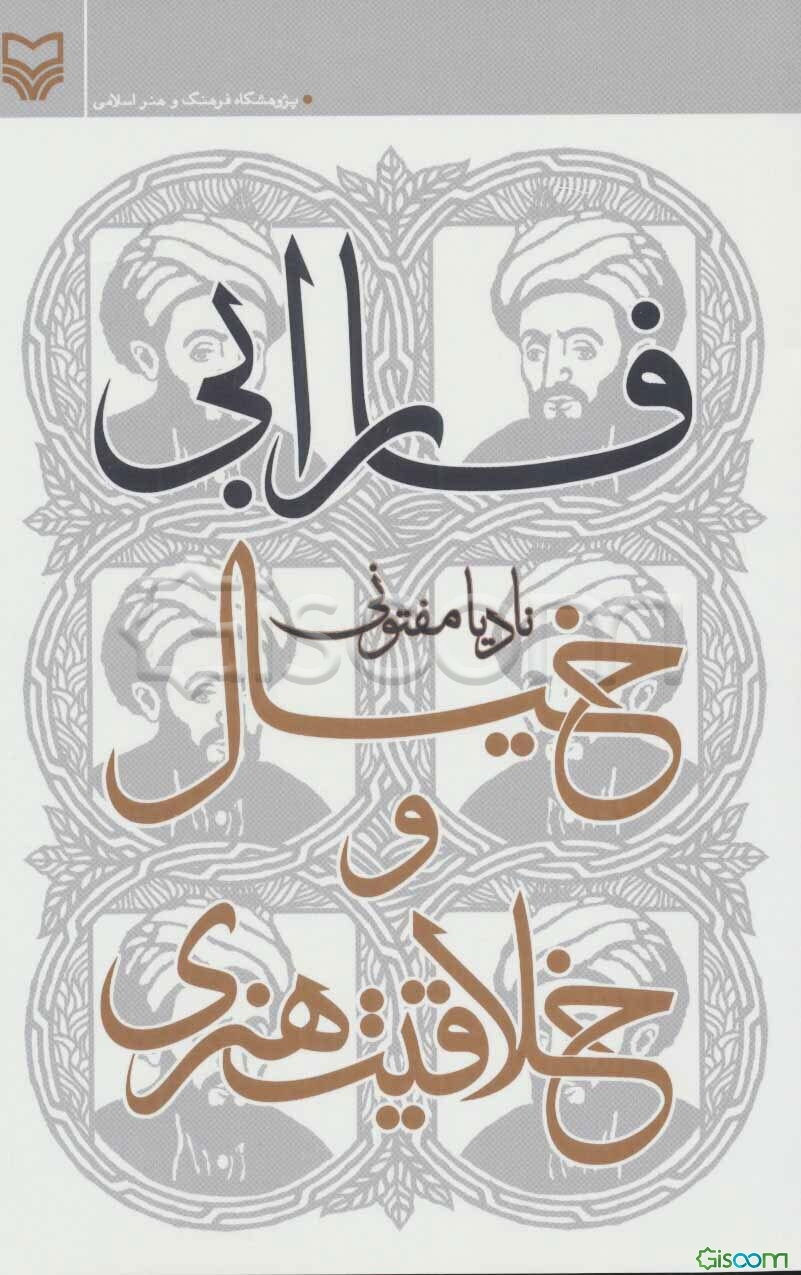 پژوهشگاه فرهنگ و هنر اسلامی
فارابی
نادیا مفتونی
خیال
و
خلاقیت هنری
Gisoom
Gisoom